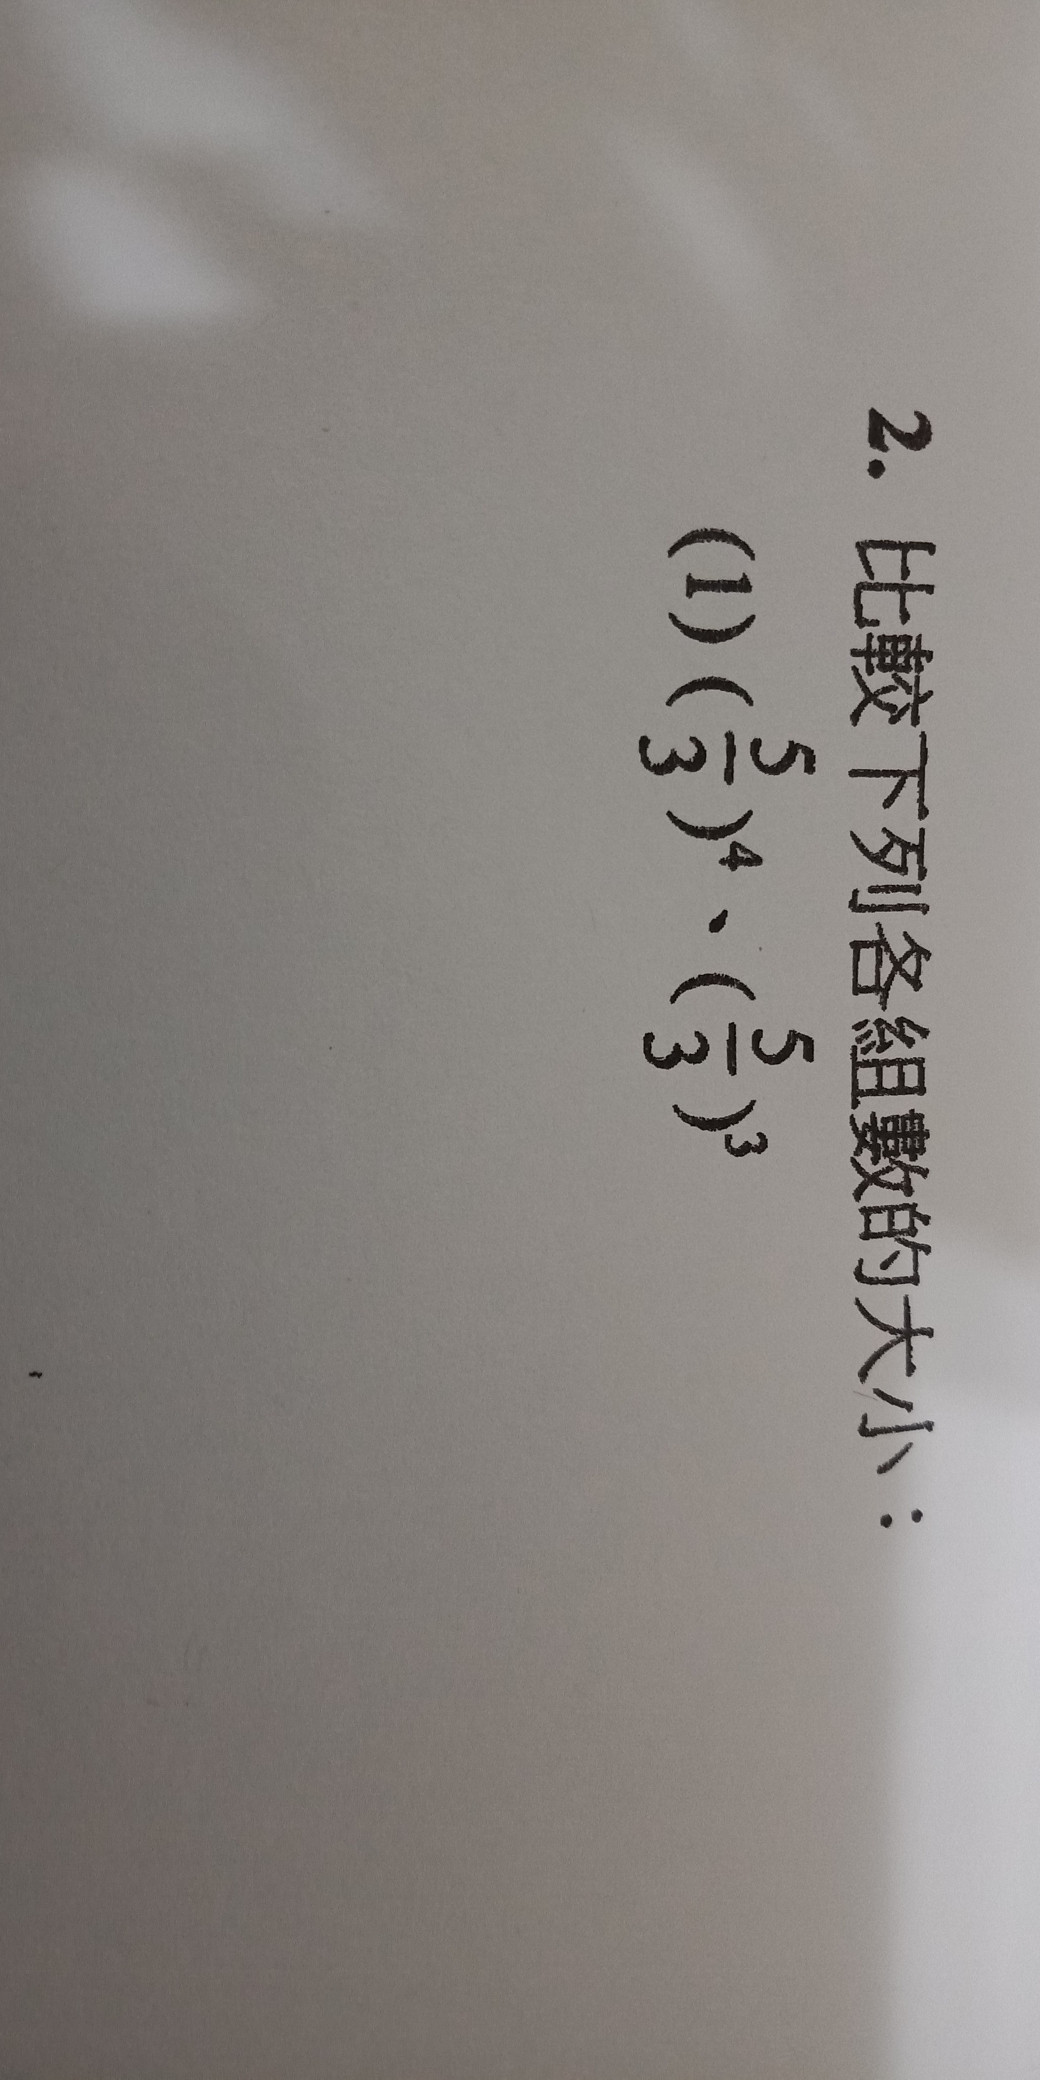 2. 比較下列各組數的大小：
(1) (5/3)⁴、(5/3)³